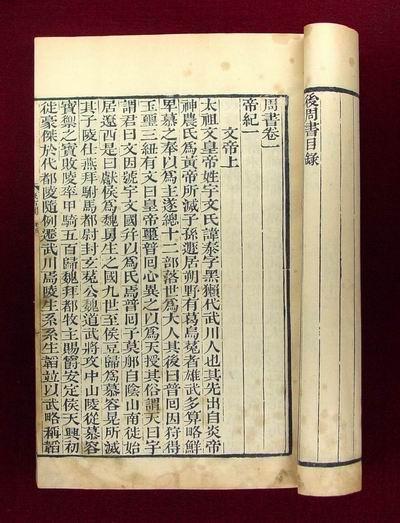 後周書目録
周書卷一
帝紀一
文帝上
太祖文皇帝姓宇文氏諱泰字黑獺代武川人也其先出自炎帝
神農氏為黃帝所滅子孫遯居朔野有葛烏菟者雄武多算略鮮
卑慕之奉以為主遂總十二部落世為大人其後曰普回因狩得
玉璽三紐有文曰皇帝璽普回心異之以為天授其俗謂天曰宇
謂君曰文因號宇文國幷以為氏焉普回子莫那自陰山南徙始
居遼西是曰獻侯為魏舅生之國九世至侯豆歸為慕容晃所滅
其子陵仕燕拜駙馬都尉封玄菟公魏道武將攻中山陵從慕容
寶禦之寶敗陵率甲騎五百歸魏拜都牧主賜爵安定侯天興初
徙豪傑於代都陵隨例遷武川焉陵生系系生韜並以武略稱韜